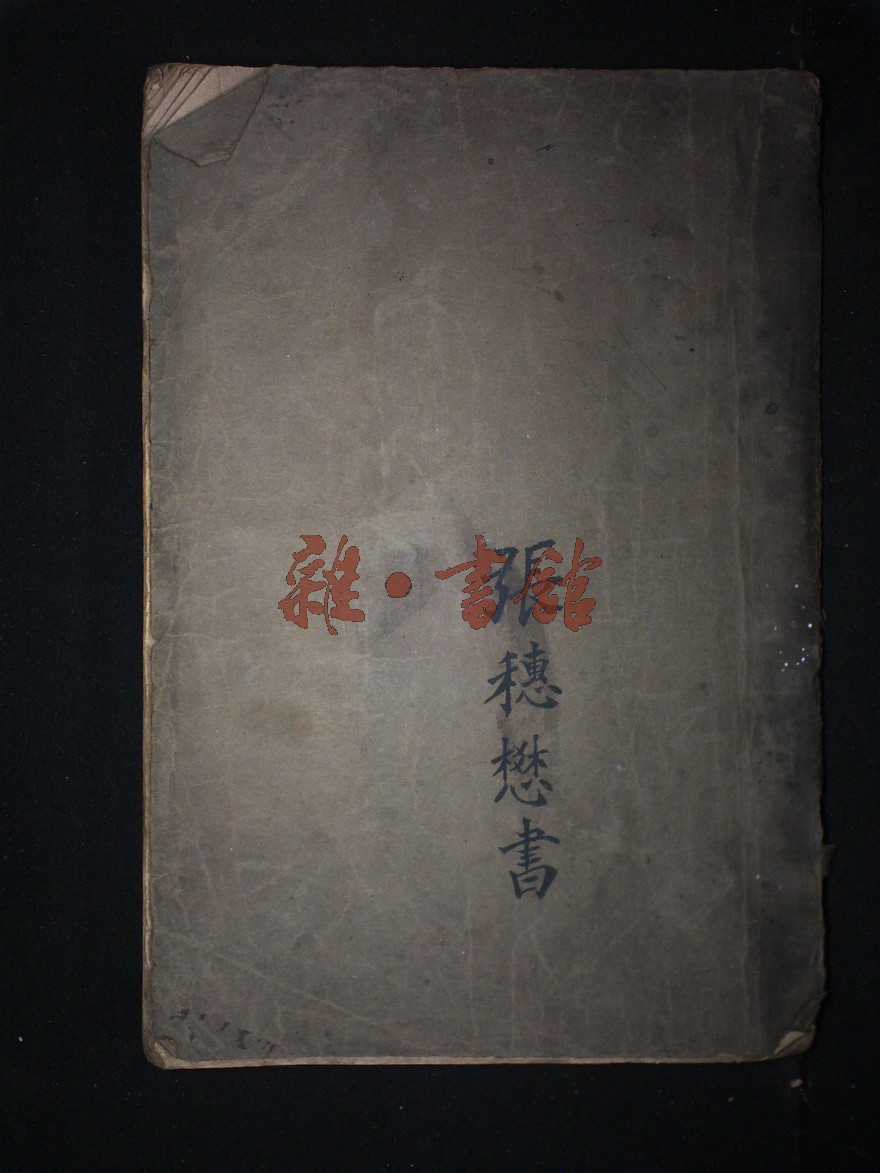 雜·書館
張穗懋書